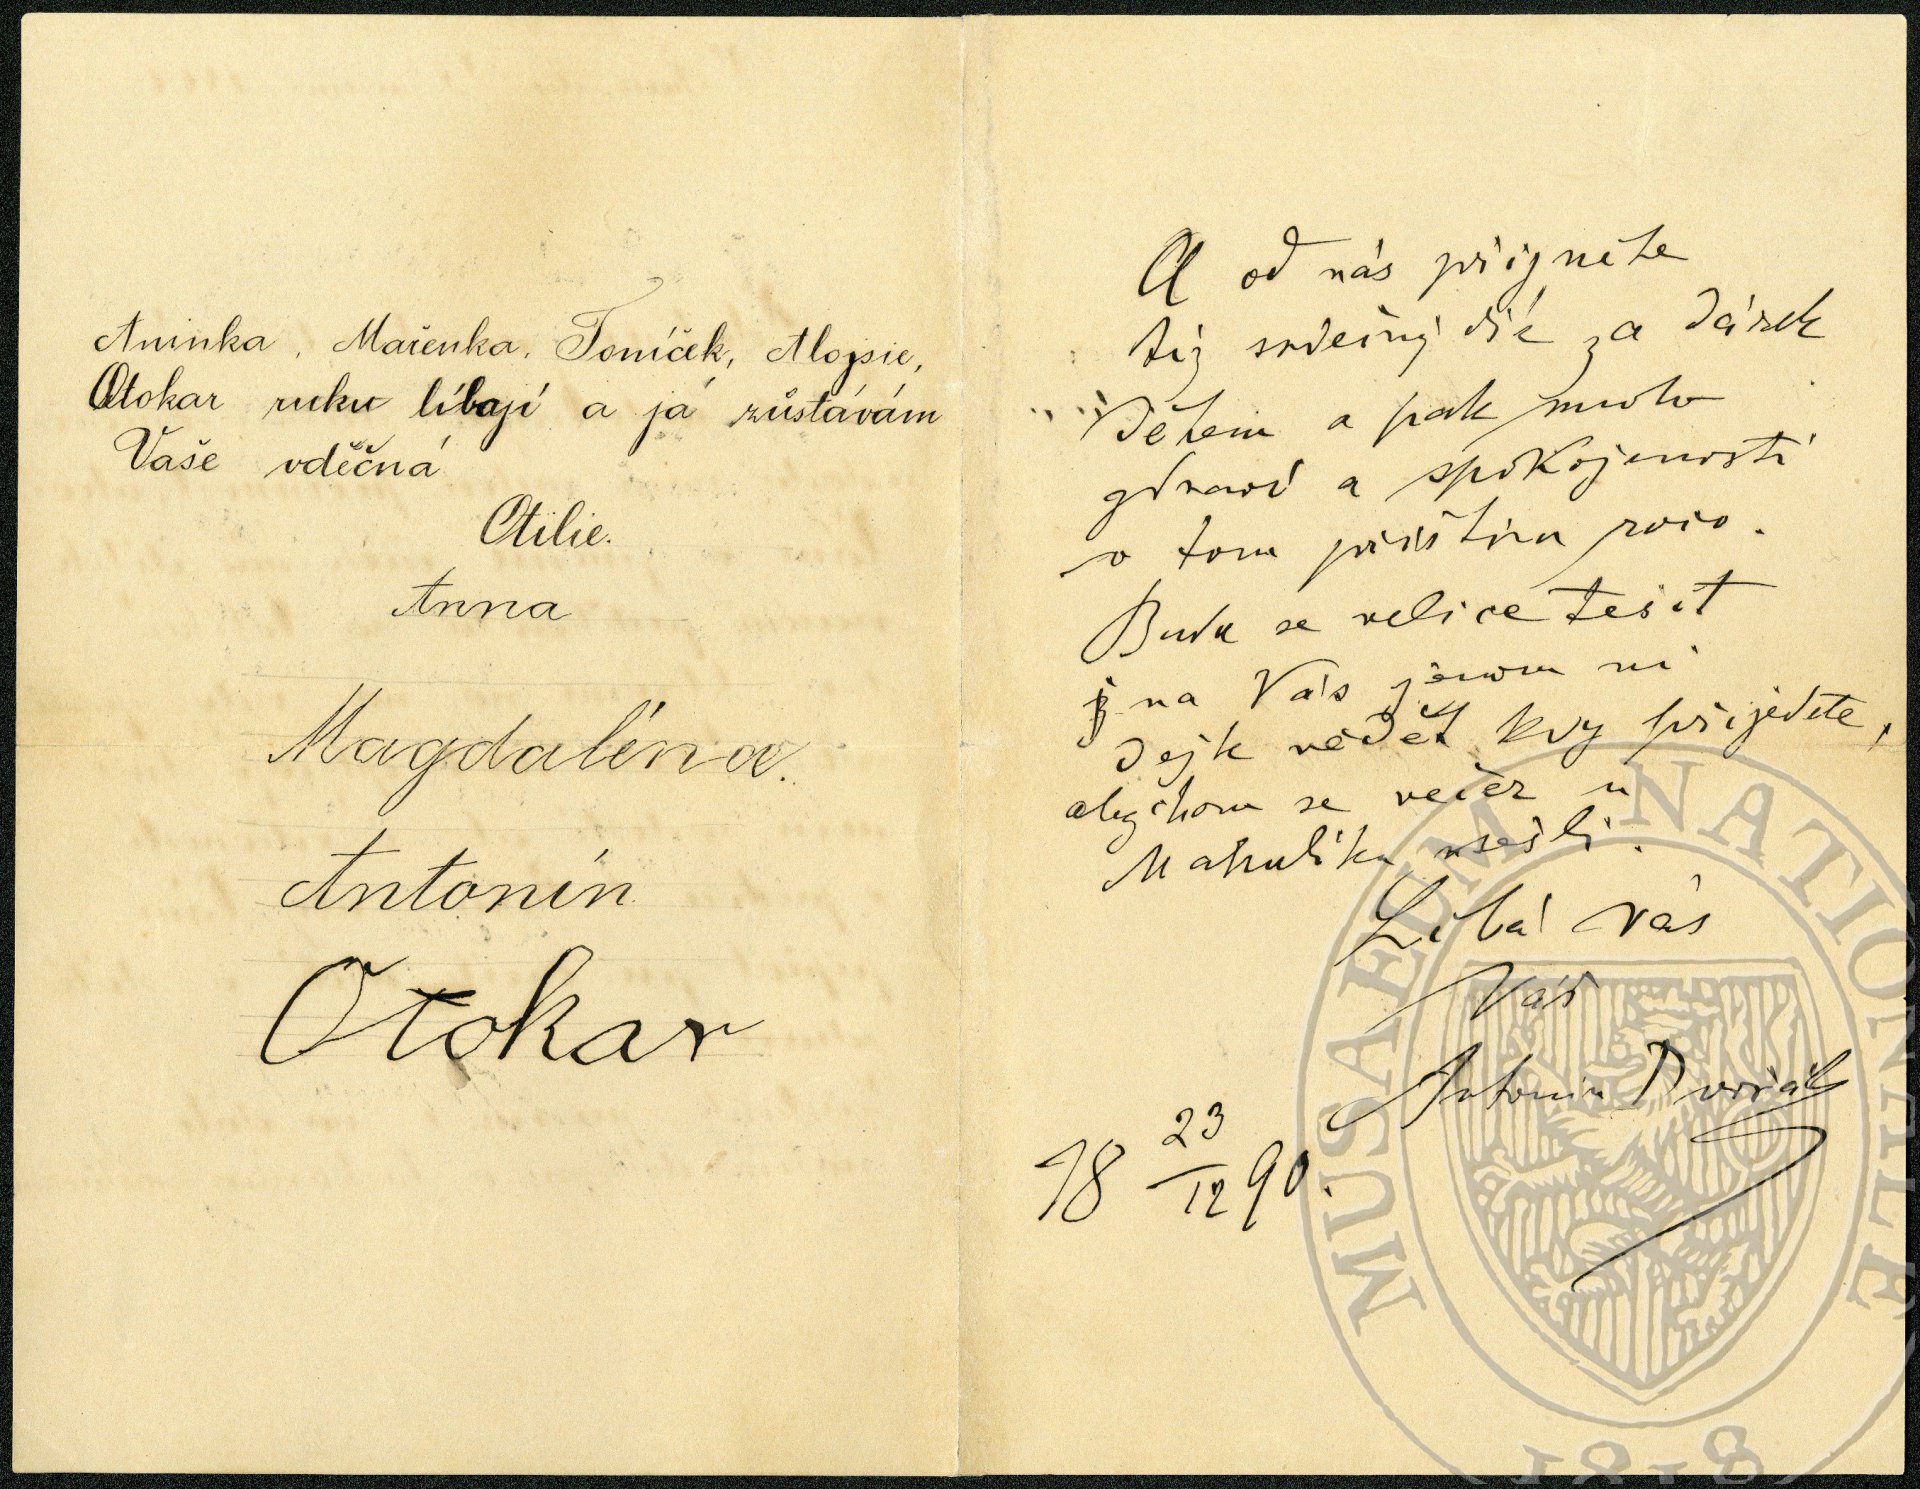 Aninka, Mařenka, Toníček, Aloisie,
Otokar ruku líbají a já zůstávám
Vaše vděčná
Otilie.
Anna
Magdaléna.
Antonín
Otokar
A od nás přijměte
též srdečný dík za dárek
dětem a pak mnoho
zdraví a spokojenosti
v tom příštím roce.
Budu se velice těšit
na Vás jenom mi
dejte vědět kdy přijedete,
abychom se večer u
Mahulíka sešli.
Líbá Vás
Váš
Antonín Dvořák
18 23/12 90.
MUSAEUM NATIONALE
1818